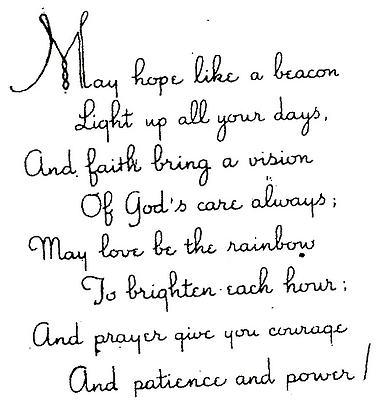 May hope like a beacon
Light up all your days,
And faith bring a vision
Of God's care always;
May love be the rainbow
To brighten each hour;
And prayer give you courage
And patience and power!